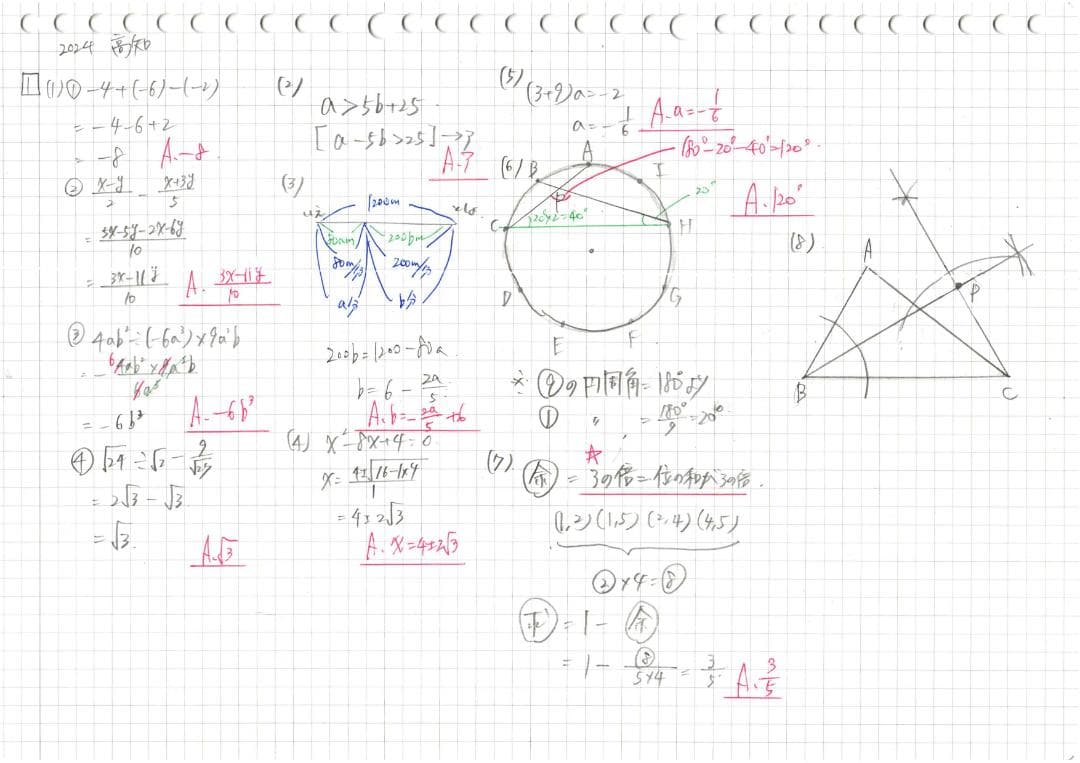 2024 高知
1 (1) ① -4+(-6)-(-2)
= -4-6+2
= -8 A. -8
② (x-y)/2 - (x+3y)/5
= (5x-5y-2x-6y)/10
= (3x-11y)/10 A. (3x-11y)/10
③ 4ab²÷(-6a³)×9a²b
= -6b³ A. -6b³
④ √24÷√2-
= 2√3-√3
= √3 A. √3
(2)
a>5b+25
[a-5b>25]
(3)
1200m
80am 200bm
80m/分 200m/分
a分 b分
200b=1200-80a
b=6-2a/5
A. b=-2a/5+6
(4) x²-8x+4=0
x=(4±√16-1×4)/1
=4±2√3
A. x=4±2√3
(5)
(3+9)a=-2
a=-1/6 A. a=-1/6
180°-20°-40°=120°
(6) A
B I
C 20×2=40° H 20°
A. 120°
D G
E F
※ ⑨の円周角=180°より
① 〃 =180°/9=20°
(7) ☆
余 = 3の倍=位の和が3の倍.
(1,2)(1,5)(2,4)(4,5)
②×4=⑧
求 = 1-余
= 1-⑧/(5×4)=3/5 A. 3/5
(8)
A
P
B C